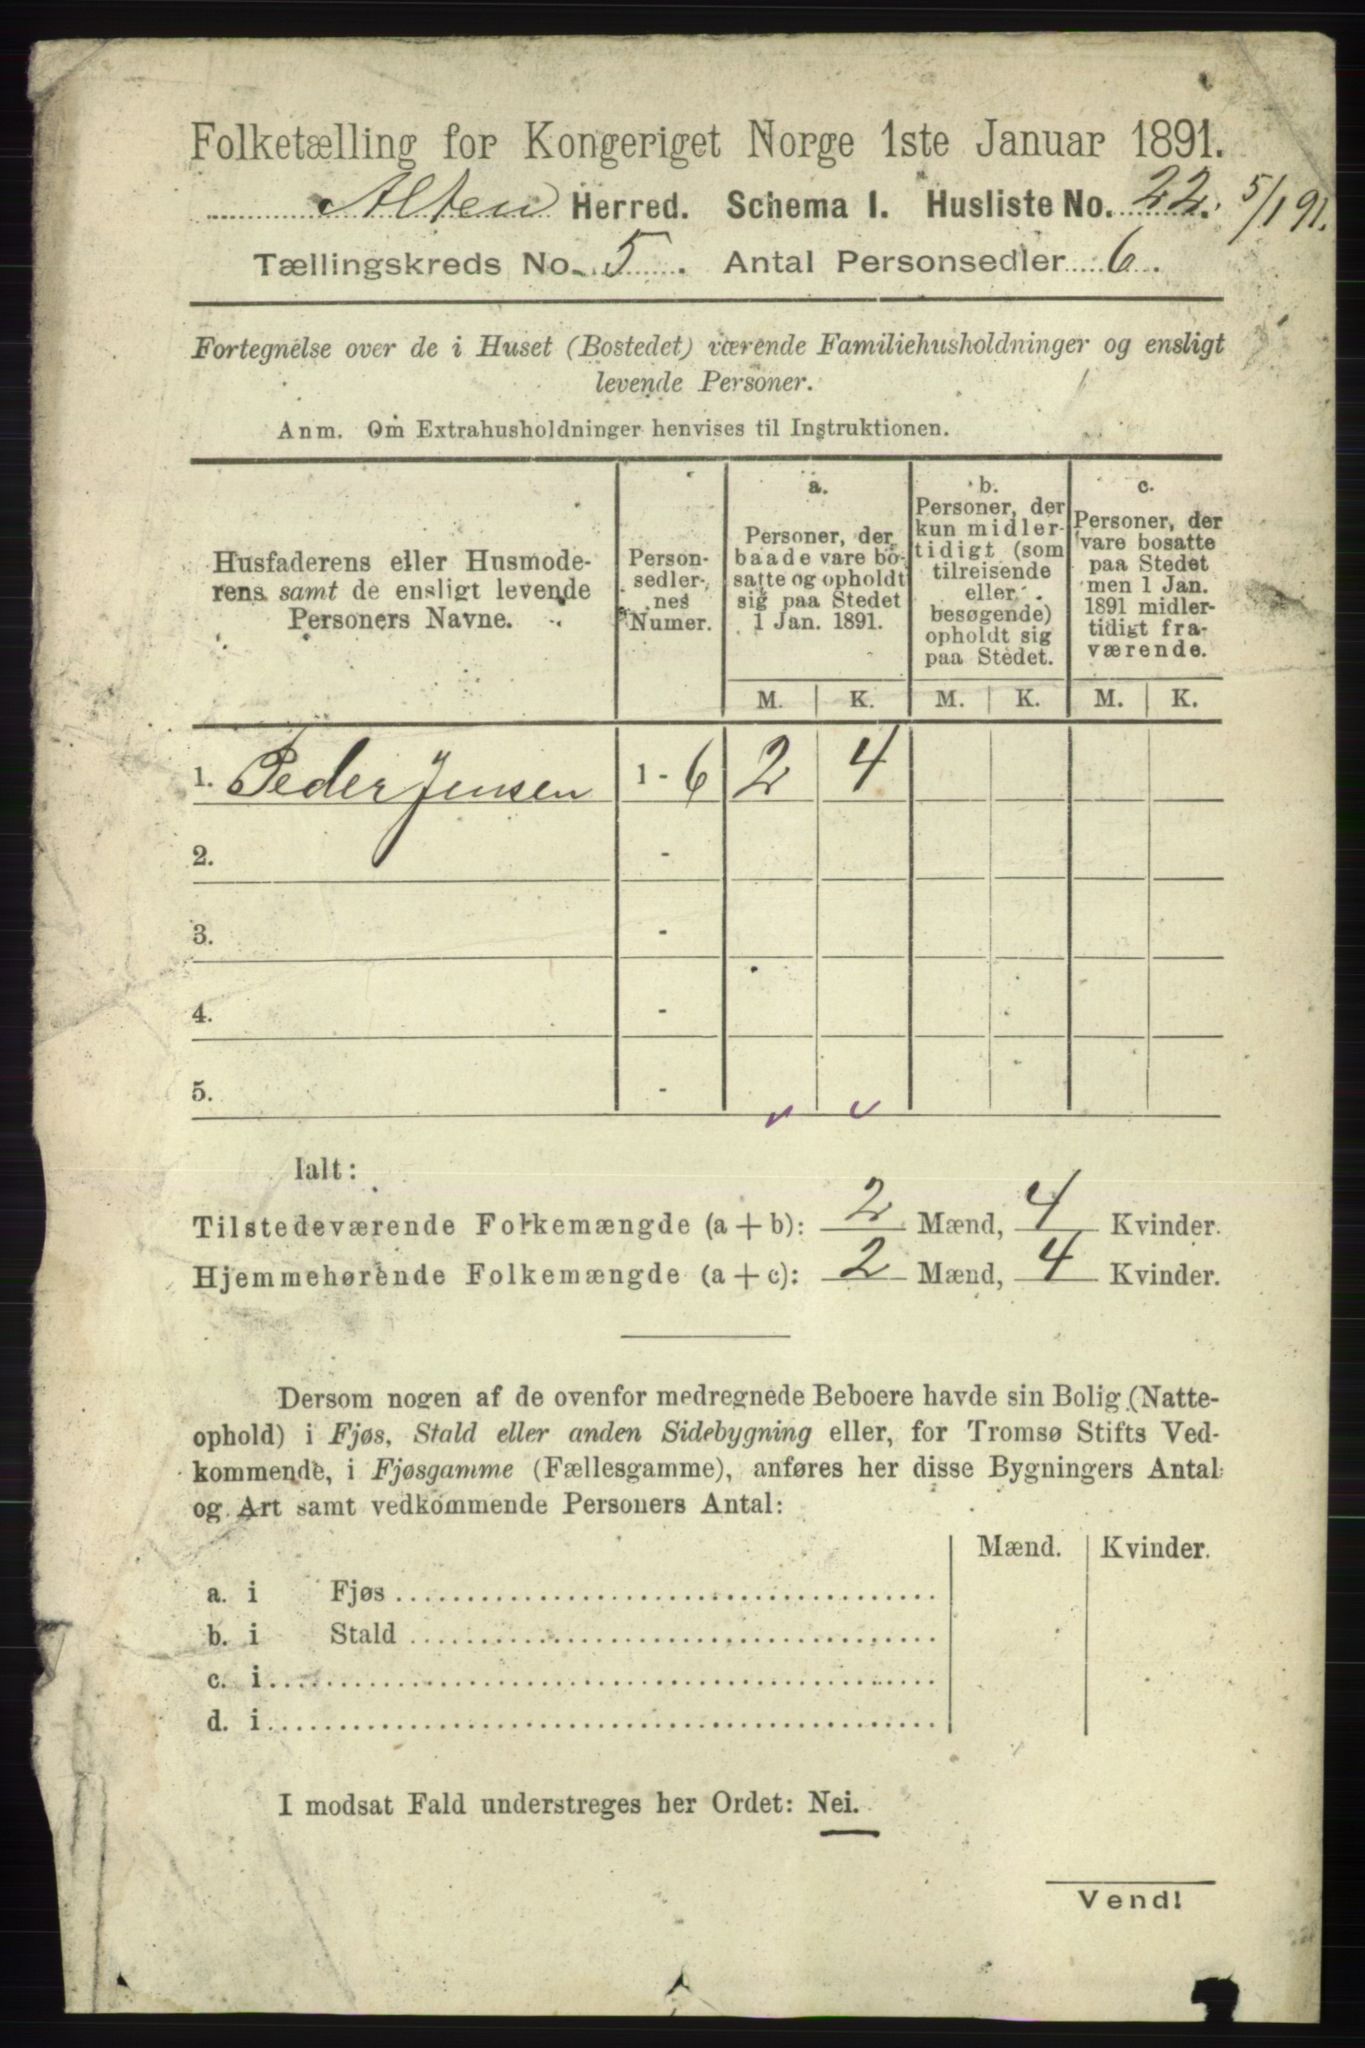 Folketælling for Kongeriget Norge 1ste Januar 1891.
Alten Herred. Schema I. Husliste No. 22. 5/1 91.
Tællingskreds No. 5. Antal Personsedler 6.
Fortegnelse over de i Huset (Bostedet) værende Familiehusholdninger og ensligt
levende Personer.
Anm. Om Extrahusholdninger henvises til Instruktionen.
Husfaderens eller Husmode-
rens samt de ensligt levende
Personers Navne.
Person-
sedler-
nes
Numer.
a.
Personer, der
baade vare bo-
satte og opholdt
sig paa Stedet
1 Jan. 1891.
b.
Personer, der
kun midler-
tidigt (som
tilreisende
eller
besøgende)
opholdt sig
paa Stedet.
c.
Personer, der
vare bosatte
paa Stedet
men 1 Jan.
1891 midler-
tidigt fra-
værende.
M. K. M. K. M. K.
1. Peder Jensen 1 - 6 2 4
2. -
3. -
4. -
5. -
Ialt:
Tilstedeværende Folkemængde (a + b): 2 Mænd, 4 Kvinder.
Hjemmehørende Folkemængde (a + c): 2 Mænd, 4 Kvinder.
Dersom nogen af de ovenfor medregnede Beboere havde sin Bolig (Natte-
ophold) i Fjøs, Stald eller anden Sidebygning eller, for Tromsø Stifts Ved-
kommende, i Fjøsgamme (Fællesgamme), anføres her disse Bygningers Antal
og Art samt vedkommende Personers Antal:
Mænd. Kvinder.
a. i Fjøs
b. i Stald
c. i
d. i
I modsat Fald understreges her Ordet: Nei.
Vend!